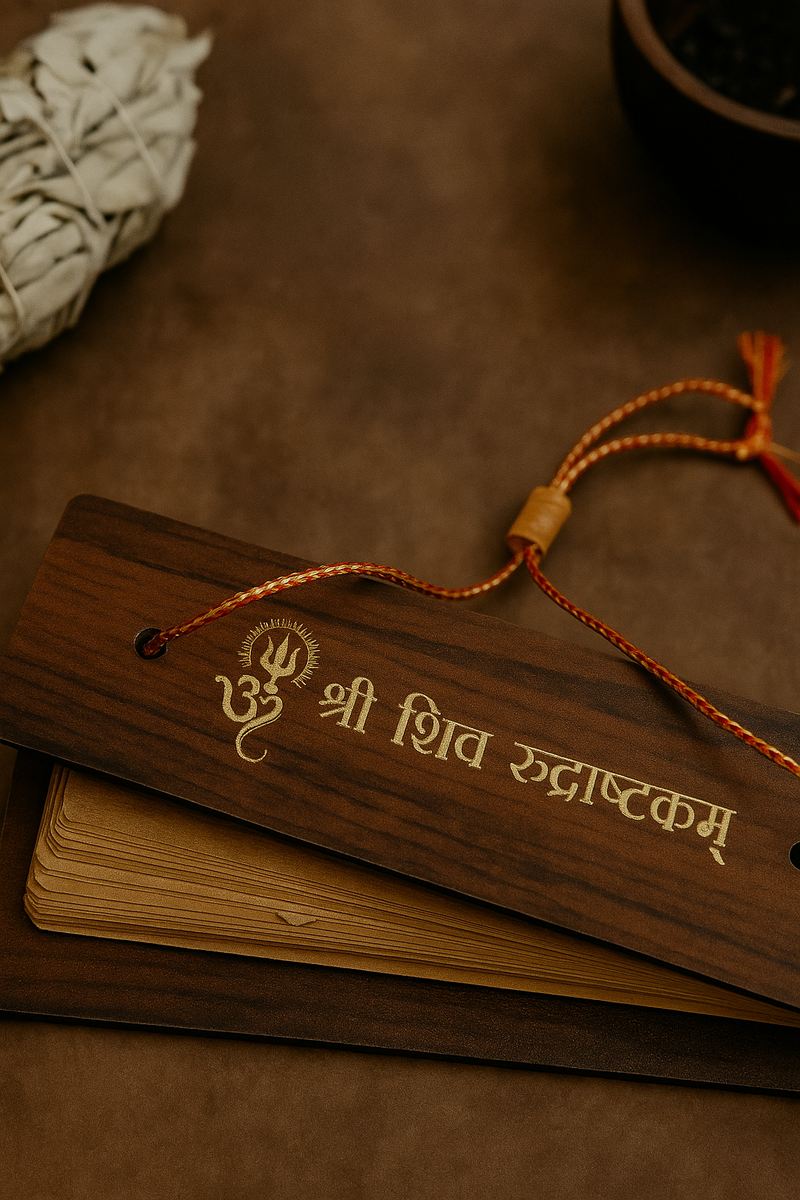 ॐ श्री शिव रुद्राष्टकम्